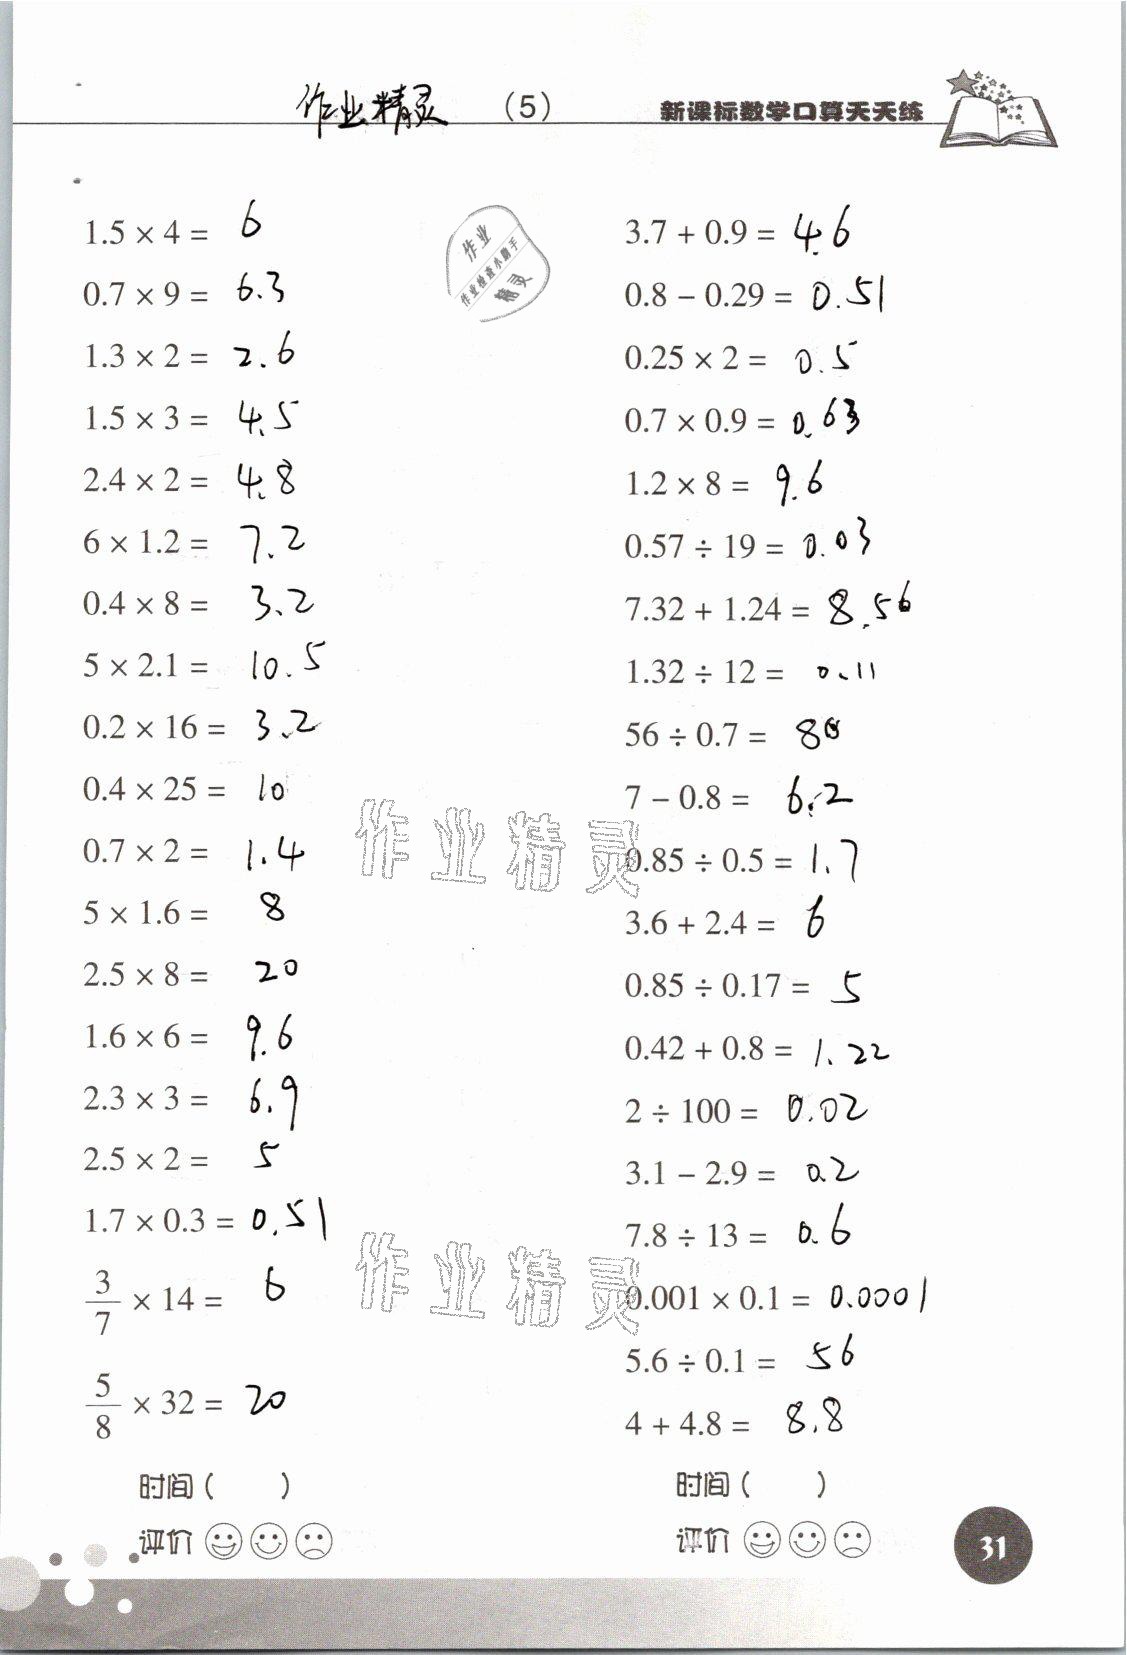 作业精灵 (5) 新课标数学口算天天练
作业
作业检查小助手
精灵
1.5 × 4 = 6
0.7 × 9 = 6.3
1.3 × 2 = 2.6
1.5 × 3 = 4.5
2.4 × 2 = 4.8
6 × 1.2 = 7.2
0.4 × 8 = 3.2
5 × 2.1 = 10.5
0.2 × 16 = 3.2
0.4 × 25 = 10
0.7 × 2 = 1.4
5 × 1.6 = 8
2.5 × 8 = 20
1.6 × 6 = 9.6
2.3 × 3 = 6.9
2.5 × 2 = 5
1.7 × 0.3 = 0.51
3/7 × 14 = 6
5/8 × 32 = 20
时间 ( )
评价
3.7 + 0.9 = 4.6
0.8 − 0.29 = 0.51
0.25 × 2 = 0.5
0.7 × 0.9 = 0.63
1.2 × 8 = 9.6
0.57 ÷ 19 = 0.03
7.32 + 1.24 = 8.56
1.32 ÷ 12 = 0.11
56 ÷ 0.7 = 80
7 − 0.8 = 6.2
0.85 ÷ 0.5 = 1.7
3.6 + 2.4 = 6
0.85 ÷ 0.17 = 5
0.42 + 0.8 = 1.22
2 ÷ 100 = 0.02
3.1 − 2.9 = 0.2
7.8 ÷ 13 = 0.6
0.001 × 0.1 = 0.0001
5.6 ÷ 0.1 = 56
4 + 4.8 = 8.8
时间 ( )
评价
作业精灵
作业精灵
31